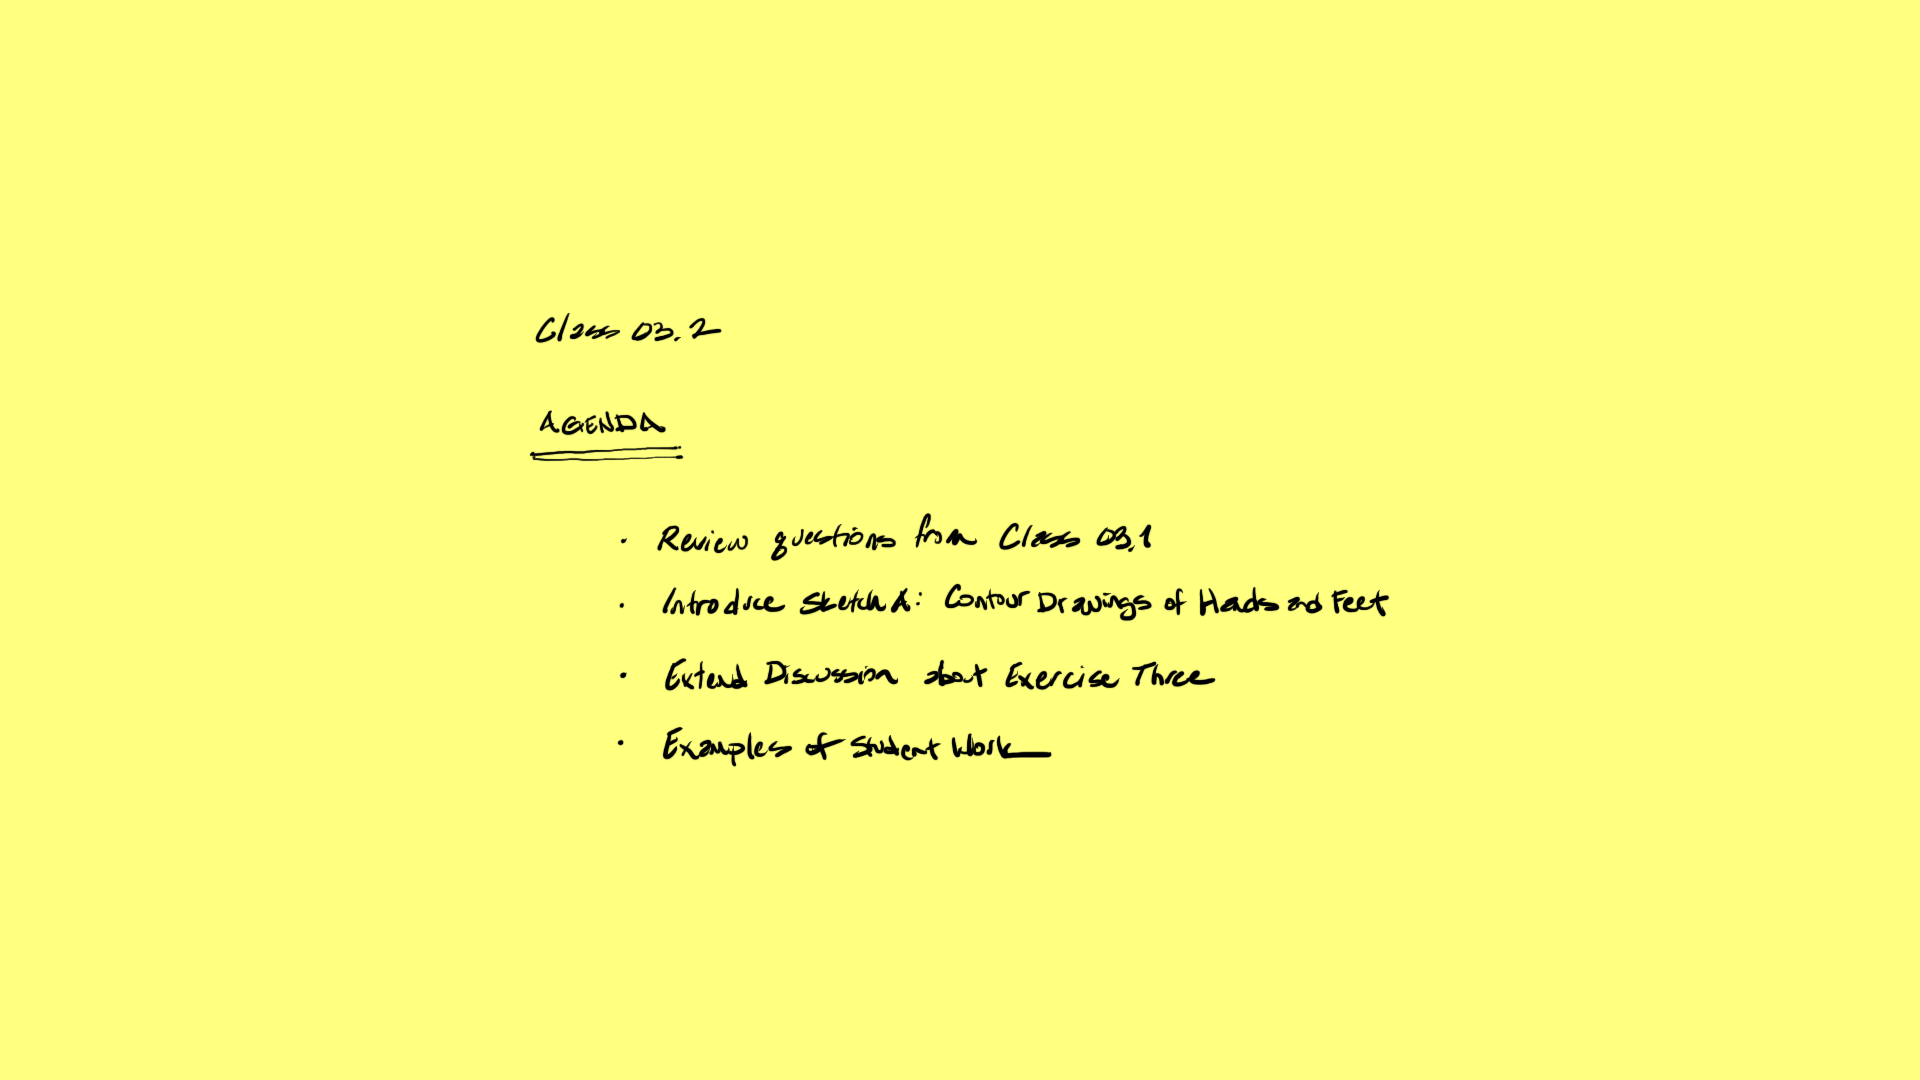 Class 03.2
AGENDA
· Review questions from Class 03.1
· Introduce Sketch A: Contour Drawings of Hands and Feet
· Extend Discussion about Exercise Three
· Examples of Student Work